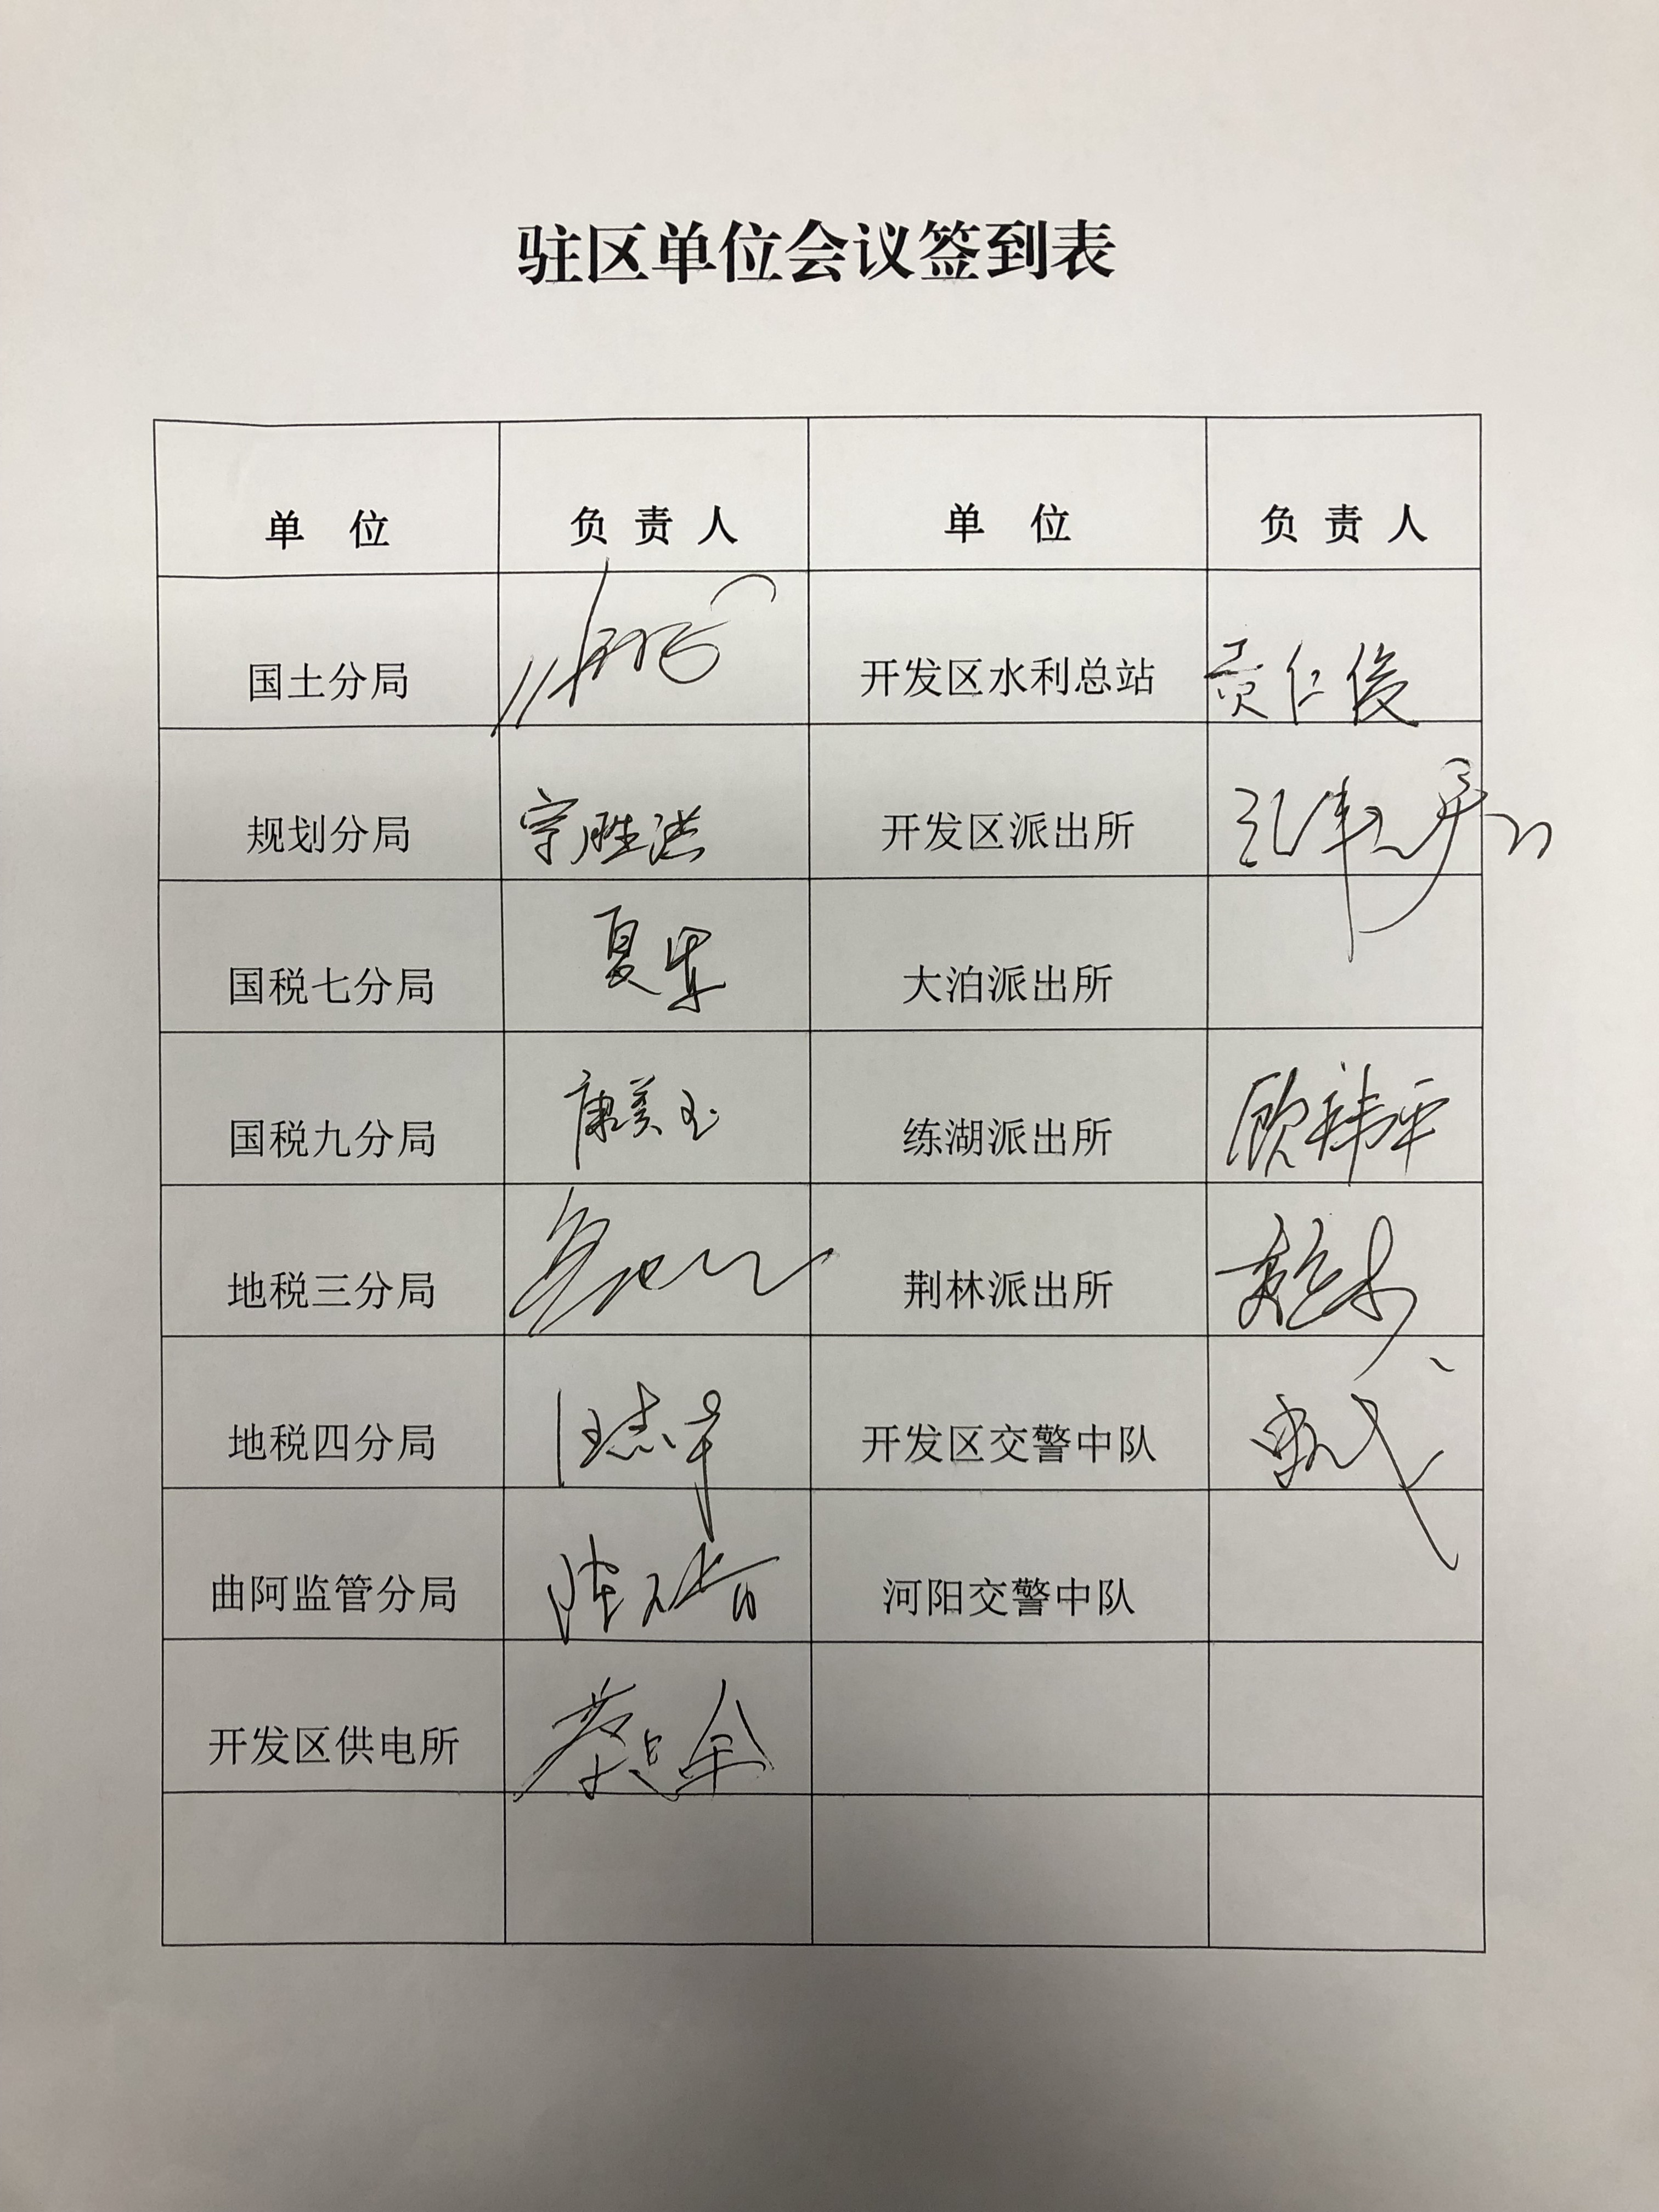 驻区单位会议签到表
单 位 负 责 人 单 位 负 责 人
国土分局 开发区水利总站 贡仁俊
规划分局 宗胜洪 开发区派出所
国税七分局 夏 大泊派出所
国税九分局 康美玉 练湖派出所 顾祎平
地税三分局 荆林派出所
地税四分局 汪志平 开发区交警中队
曲阿监管分局 陈 河阳交警中队
开发区供电所